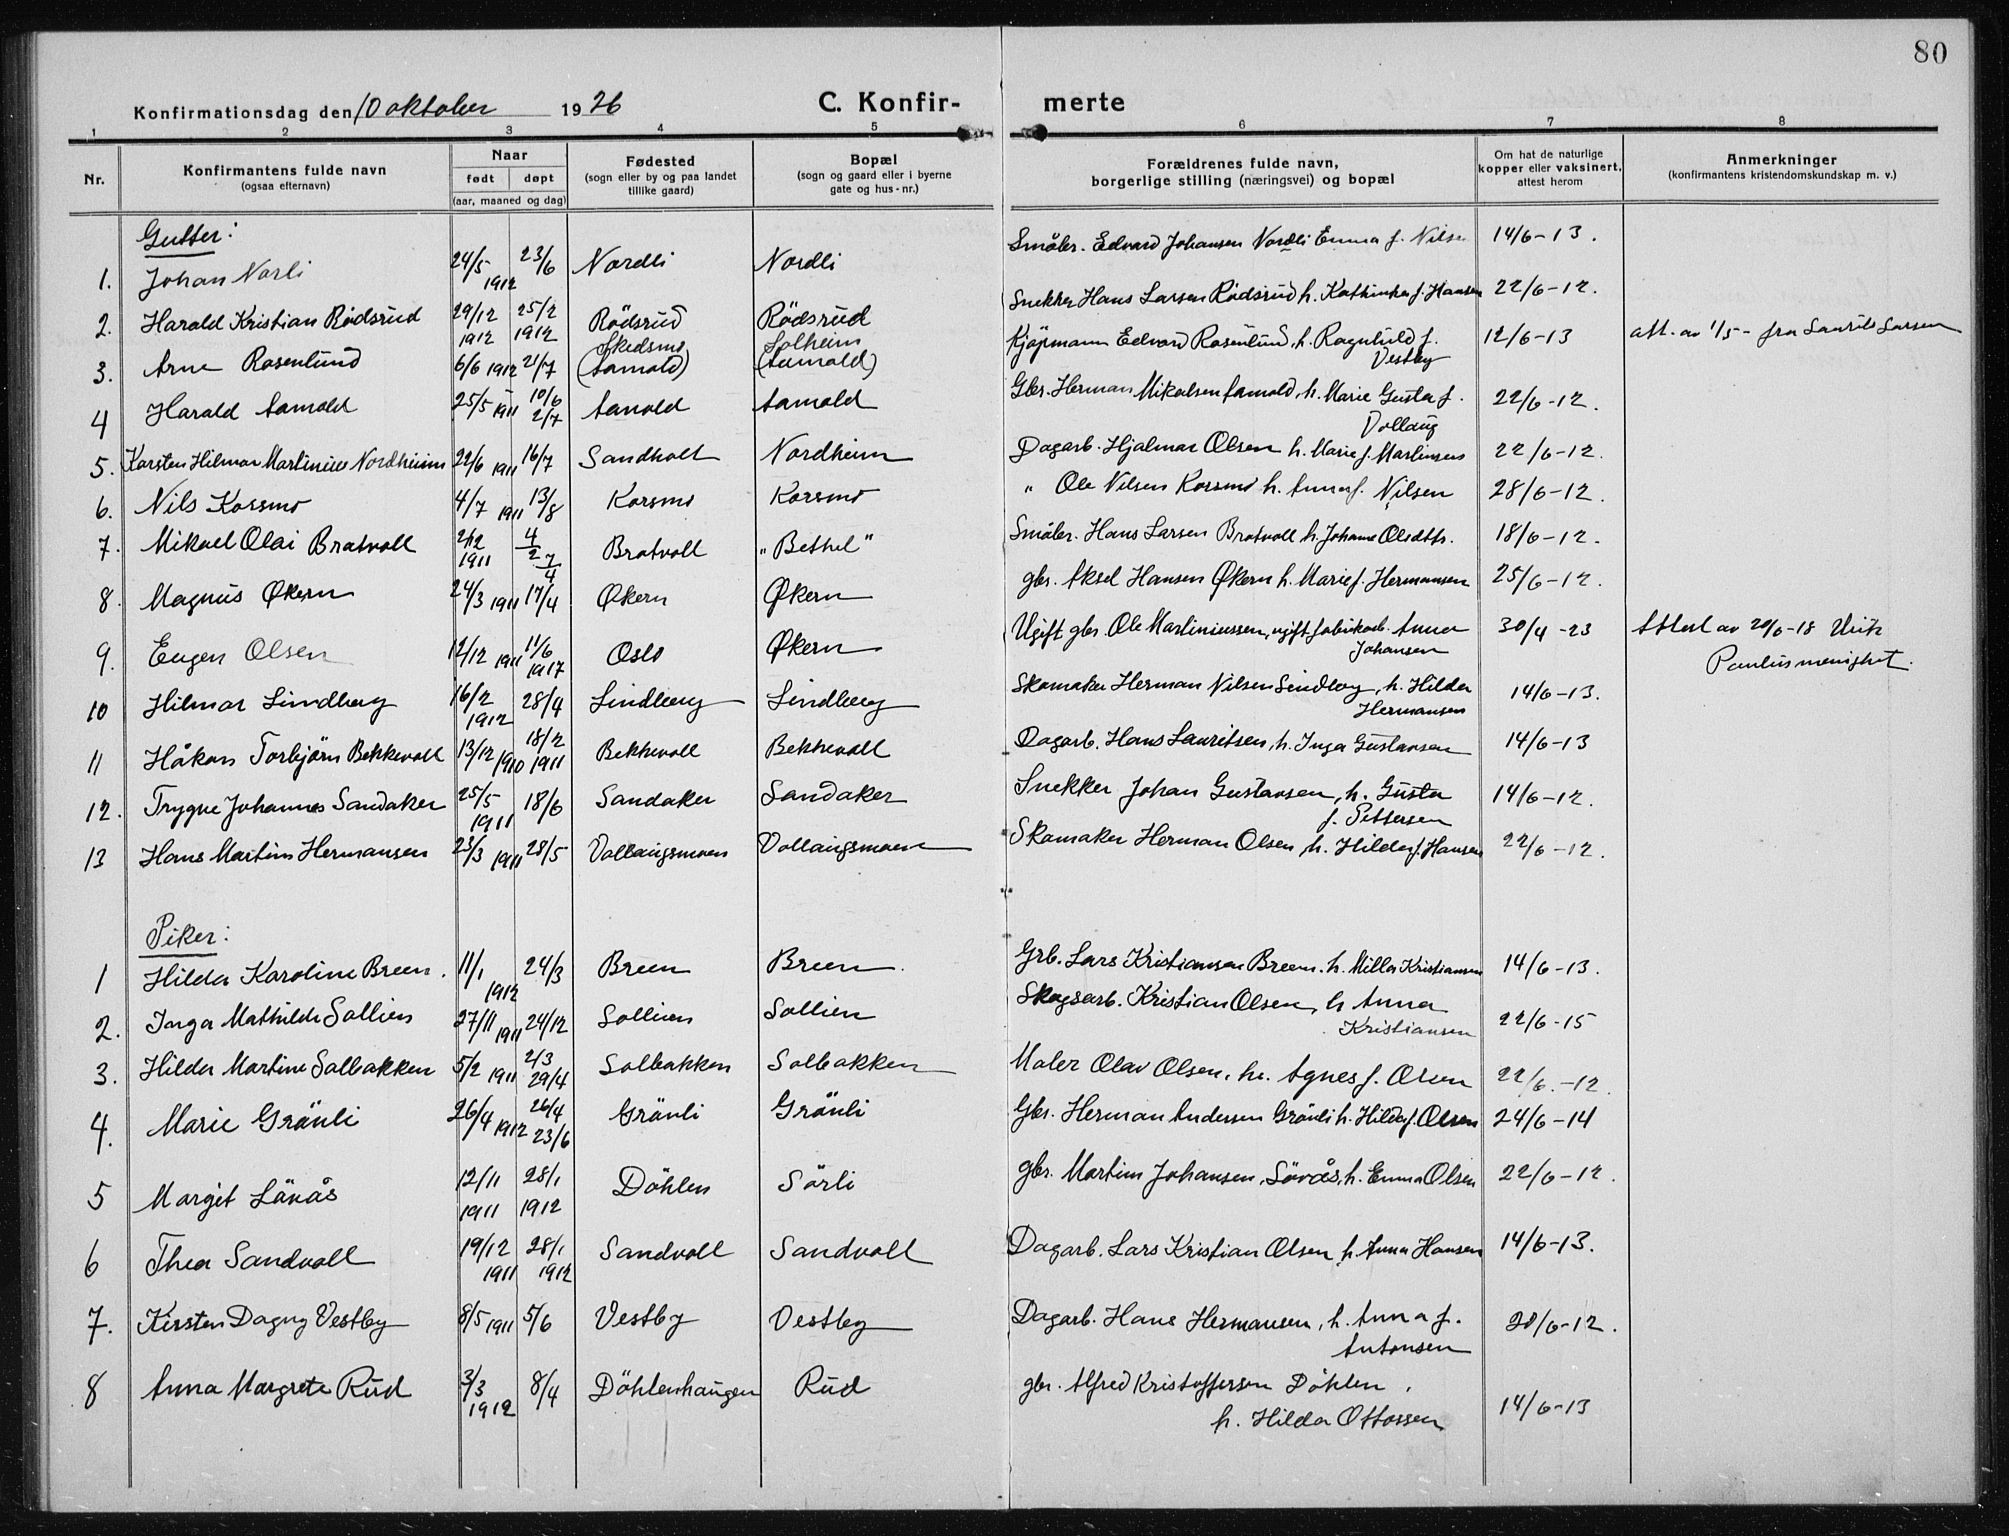 80
Konfirmationsdag den 10 oktober 1926 C. Konfir- merte
1 2 3 4 5 6 7 8
Nr. Konfirmantens fulde navn (ogsaa efternavn) Naar født døpt (aar, maaned og dag) Fødested (sogn eller by og paa landet tillike gaard) Bopæl (sogn og gaard eller i byerne gate og hus-nr.) Forældrenes fulde navn, borgerlige stilling (næringsvei) og bopæl Om hat de naturlige kopper eller vaksinert, attest herom Anmerkninger (konfirmantens kristendomskundskap m. v.)
Gutter:
1. Johan Norli 24/5 1912 23/6 Nordli Nordli Småbr. Edvard Johansen Nordli Emma f. Nilsen 14/6-13.
2. Harald Kristian Rödsrud 29/12 1912 25/2 1912 Rödsrud Rödsrud Snekker Hans Larsen Rödsrud h. Kathinka f. Hansen 22/6-12.
3. Arne Rosenlund 6/6 1912 21/7 Skedsmo (Aamold) Solheim (Aamold) Kjöpmann Edvard Rosenlund, h. Ragnhild f. Vestby 12/6-13 att. av 1/5- fra Laurits Larsen
4 Harald Aamold 25/5 1911 10/6 2/7 Aamold Aamold Gbr. Herman Mikalsen Aamold, h. Marie Gusta f. Vollaug 22/6-12.
5. Karsten Hilmar Martinius Nordheim 22/6 1911 16/7 Sandholt Nordheim Dagarb. Hjalmar Olsen h. Marie f. Martinsen 22/6-12.
6. Nils Korsmo 4/7 1911 13/8 Korsmo Korsmo " Ole Nilsen Korsmo h. Anna f. Nilsen 28/6-12.
7. Mikael Olai Bratvoll 2/12 1911 4/2 7/4 Bratvoll "Bethel" Småbr. Hans Larsen Bratvoll h. Johanne Olsdttr. 18/6-12.
8. Magnus Økern 24/3 1911 17/4 Økern Økern gbr. Aksel Hansen Økern h. Marie f. Hermansen 25/6-12.
9. Eugen Olsen 12/12 1911 11/6 1917 Oslo Økern Ugift gbr. Ole Martiniussen, ugift fabrikarb. Anna Johansen 30/4-23 Attest av 20/6-18 Paulus menighet.
10 Hilmar Lindberg 16/2 1912 28/4 Lindberg Lindberg Skomaker Herman Nilsen Lindberg, h. Hilda Hermansen 14/6-13.
11 Håkon Torbjörn Bekkevoll 13/12 1910 18/2 1911 Bekkevoll Bekkevoll Dagarb. Hans Lauritsen, h. Inga Gustavsen 14/6-13
12. Trygve Johannes Sandaker 25/5 1911 18/6 Sandaker Sandaker Snekker Johan Gustavsen, h. Gusta f. Pettersen 14/6-12.
13 Hans Martin Hermansen 23/3 1911 28/5 Vollaugsmoen Vollaugsmoen Skomaker Herman Olsen, h. Hilda f. Hansen 22/6-12.
Piker:
1 Hilda Karoline Breen. 11/1 1912 24/3 Breen Breen. Grb. Lars Kristiansen Breen. h. Milla Kristiansen 14/6-13.
2. Inga Mathilde Sollien 27/11 1911 24/12 Sollien Sollien Skogsarb. Kristian Olsen, h Anna Kristiansen 22/6-15
3. Hilda Martine Solbakken 5/2 1911 2/3 29/4 Solbakken Solbakken Maler Olav Olsen, h. Agnes f. Olsen 22/6.-12.
4. Marie Grönli 26/4 1912 26/4 23/6 Grönli Grönli Gbr. Herman Andersen Grönli h. Hilda f. Olsen 24/6-14
5 Margit Lövås 12/11 1911 28/1 1912 Döhlen Sörli gbr. Martin Johansen, Lövås, h. Emma Olsen 22/6-12.
6 Thea Sandvoll 19/12 1911 28/1 1912 Sandvoll Sandvoll Dagarb. Lars Kristian Olsen h. Anna Hansen 14/6-13.
7. Kirsten Dagny Vestby 8/5 1911 5/6 Vestby Vestby Dagarb. Hans Hermansen, h. Anna f. Antonsen 20/6-12.
8 Anna Margrete Rud 3/3 1912 8/4 Döhlenhaugen Rud gbr. Alfred Kristoffersen Döhlen, h. Hilda Ottossen 14/6-13